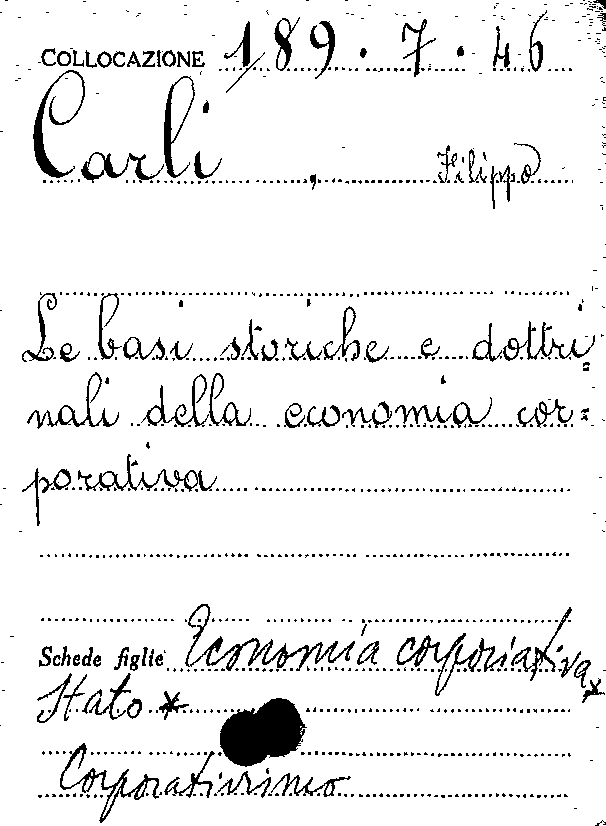 COLLOCAZIONE 189.7.46
Carli , Filippo
Le basi storiche e dottri=
nali della economia cor=
porativa
Schede figlie Economia corporativa *
Stato *
Corporativismo